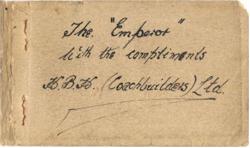 The "Emperor"
With the compliments
H.B.H. (Coachbuilders) Ltd.